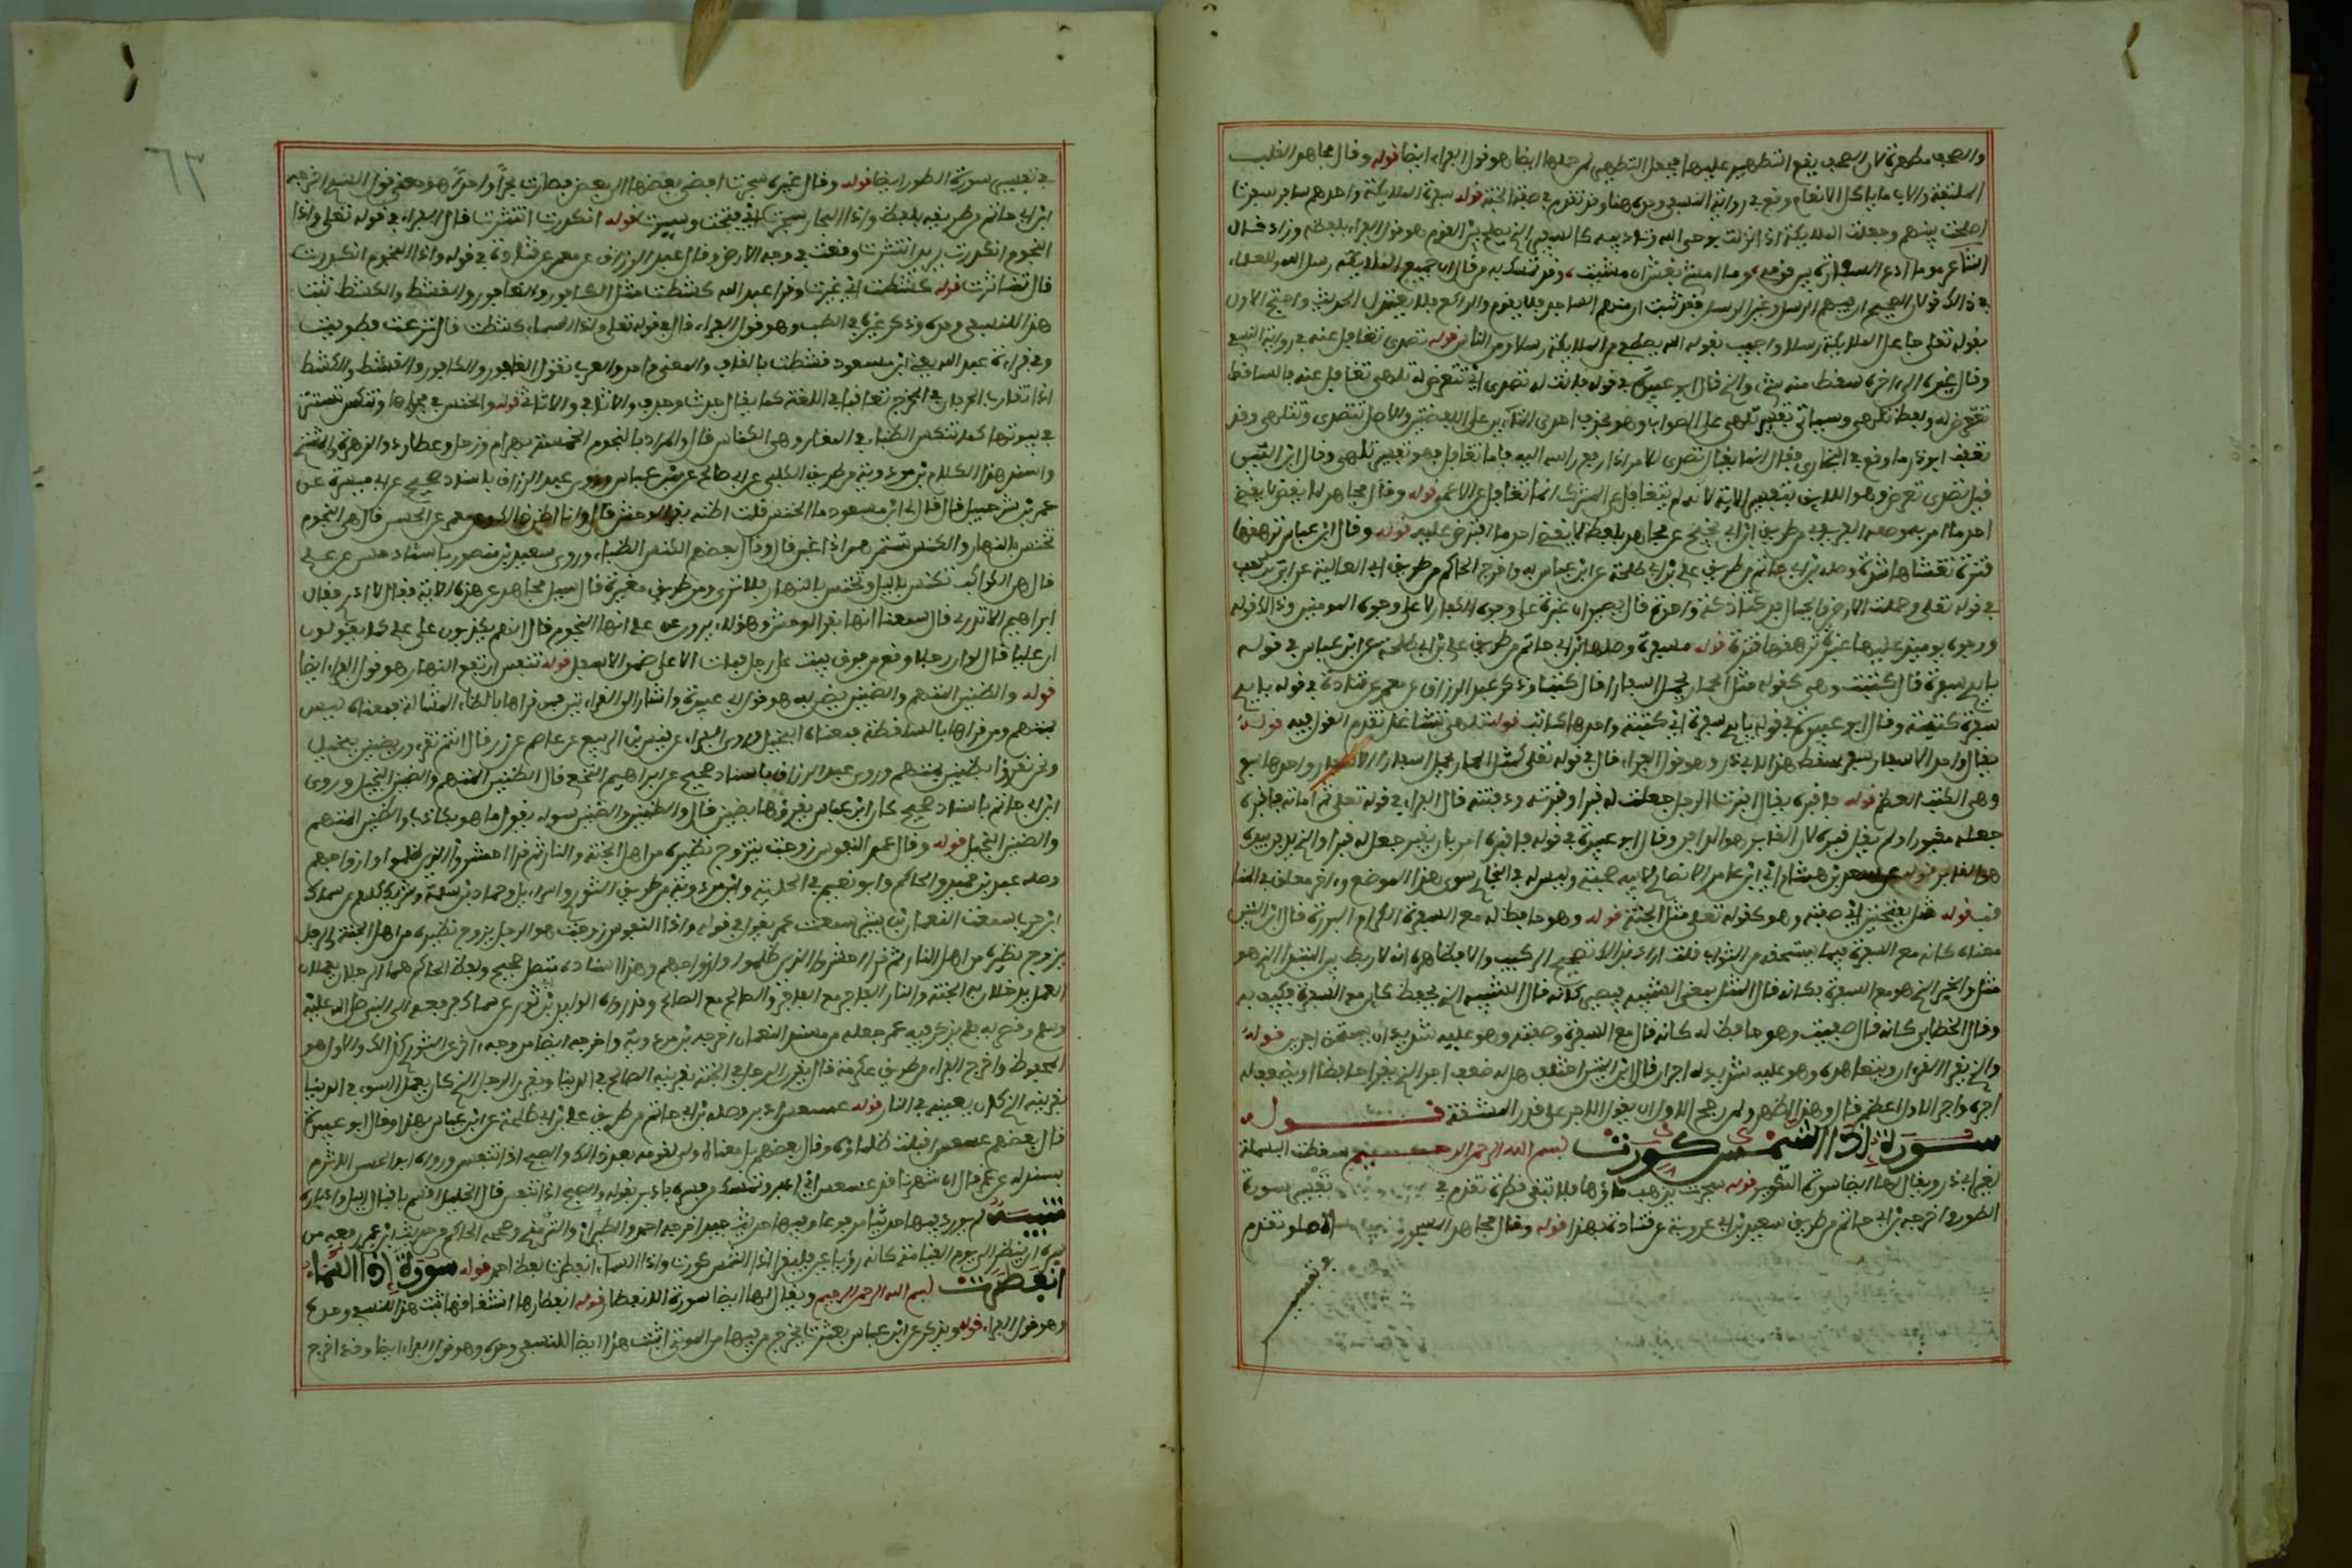 والصحف مطهرة لان الصحف يقع التطهير عليها فجعل التطهير لمن حملها ايضا هو قول الفراء ايضا قوله وقال مجاهد الغلب
الملتفة والاب ما ياكل الانعام وقع في رواية النسفي وحده هنا وقد تقدم في صفة الجنة قوله سفرة الملائكة واحدهم سافر سفرت
اصلحت بينهم وجعلت الملائكة اذا نزلت بوحي الله وتاديبه كالسفير الذي يصلح بين القوم هو قول الفراء بلفظه وزاد قال
الشاعر وما ادع السفارة بين قومي وما امشي بغش ان مشيت وقد تمسك به من قال ان جميع الملائكة رسل الله وللعلماء
في ذلك قولان الصحيح ان فيهم الرسل وغير الرسل وقد ثبت ان منهم الساجد فلا يقوم والراكع فلا يعتدل الحديث واحتج الاول
بقوله تعلى جاعل الملائكة رسلا واجيب بقوله الله يصطفي من الملائكة رسلا ومن الناس قوله تصدى تغافل عنه في رواية النسفي
وقال غيره الى اخره سقط منه شيء والذي قال ابو عبيدة في قوله فانت له تصدى اي تتعرض له تلهى تغافل عنه فالساقط
لفظ تتعرض له ولفظ تلهى وسياتي تفسير تلهى على الصواب وهو بحذف احدى التاءين في اللفظتين والاصل تتصدى وتتلهى وقد
تعقب ابو ذر ما وقع في البخاري فقال انما يقال تصدى للامر اذا رفع راسه اليه فاما تغافل فهو تفسير تلهى وقال ابن التين
قيل تصدى تعرض وهو اللائق بتفسير الاية لانه لم يتغافل عن المشرك انما تغافل عن الاعمى قوله وقال مجاهد لما يقض لا يقضي
احد ما امر به وصله الفريابي من طريق ابن ابي نجيح عن مجاهد بلفظ لا يقضي احد ما افترض عليه قوله وقال ابن عباس ترهقها
قترة تغشاها شدة وصله ابن ابي حاتم من طريق علي بن ابي طلحة عن ابن عباس به واخرج الحاكم من طريق ابي العالية عن ابي بن كعب
في قوله تعلى وحملت الارض والجبال فدكتا دكة واحدة قال يصيران غبرة على وجوه الكفار لا على وجوه المومنين وذلك قوله
ووجوه يومئذ عليها غبرة ترهقها قترة قوله مسفرة وصله ابن ابي حاتم من طريق علي بن ابي طلحة عن ابن عباس في قوله
بايدي سفرة قال كتبة وهي كقوله مثل الحمار يحمل اسفارا قال كتبا وذكر عبد الرزاق عن معمر عن قتادة في قوله بايدي
سفرة كتبة وقال ابو عبيدة في قوله بايدي سفرة اي كتبة واحدها كاتب قوله تلهى تشاغل تقدم القول فيه قوله
يقال واحد الاسفار سفر سقط هذا لابي ذر وهو قول الفراء قال في قوله تعلى كمثل الحمار يحمل اسفارا الاسفار واحدها سفر
وهي الكتب العظام قوله فاقبره يقال اقبرت الرجل جعلت له قبرا وقبرته دفنته قال الفراء في قوله تعلى ثم اماته فاقبره
جعله مقبورا ولم يقل قبره لان القابر هو الدافن وقال ابو عبيدة في قوله فاقبره امر بان يقبر جعل له قبرا والذي يدفن بيده
هو القابر قوله عن سعد بن هشام اي ابن عامر الانصاري لابيه صحبة وليس له في البخاري سوى هذا الموضع واخر معلق في المنا
قب قوله مثل بفتحتين اي صفته وهو كقوله تعلى مثل الجنة قوله وهو حافظ له مع السفرة الكرام البررة قال ابن التين
معناه كانه مع السفرة فيما يستحقه من الثواب قلت اراد بذلك تصحيح التركيب والا فظاهره انه لا ربط بين المبتدا الذي هو
مثل والخبر الذي هو مع السفرة فكانه قال المثل بمعنى الشبيه فيصير كانه قال الشبيه الذي يحفظ كائن مع السفرة فكيف به
وقال الخطابي كانه قال صفته وهو حافظ له كانه قال مع السفرة وصفته وهو عليه شديد ان يستحق اجرين قوله
والذي يقرا القرءان ويتعاهده وهو عليه شديد له اجران قال ابن التين اختلف هل له ضعف اجر الذي يقرا حافظا او يضاعف له
اجره واجر الاول اعظم قال وهذا اظهر ولمن رجح الاول ان يقول الاجر على قدر المشقة قوله
سورة إذا الشمس كورت بسم الله الرحمن الرحيم سقطت البسملة
لغير ابي ذر ويقال لها ايضا سورة التكوير قوله سجرت يذهب ماؤها فلا تبقى قطرة تقدم في تفسير سورة
الطور واخرجه ابن ابي حاتم من طريق سعيد بن ابي عروبة عن قتادة بهذا قوله وقال مجاهد المسجور المملو تقدم
في تفسير
في تفسير سورة الطور ايضا قوله وقال غيره سجرت افضى بعضها الى بعض فصارت بحرا واحدا هو معنى قول السدي اخرجه
ابن ابي حاتم من طريقه بلفظ واذا البحار سجرت اي فتحت وسيرت قوله انكدرت انتثرت قال الفراء في قوله تعلى واذا
النجوم انكدرت يريد انتثرت وقعت في وجه الارض وقال عبد الرزاق عن معمر عن قتادة في قوله واذا النجوم انكدرت
قال تناثرت قوله كشطت اي غيرت وقرا عبد الله كشطت مثل الكافور والقافور والقسط والكشط ثبت
هذا للنسفي وحده وذكره غيره في الطب وهو قول الفراء قال في قوله تعلى واذا السماء كشطت قال نزعت فطويت
وفي قراءة عبد الله يعني ابن مسعود قشطت بالقاف والمعنى واحد والعرب تقول القافور والكافور والقشط والكشط
اذا تقارب الحرفان في المخرج تعاقبا في اللغة كما يقال حدث وحدف والاثاثي والاثافي قوله والخنس تخنس في مجراها وتكنس تستتر
في بيوتها كما تكنس الظباء في المغار وهي الكناس قال والمراد بالنجوم الخمسة بهرام وزحل وعطارد والزهرة والمشتري
واسند هذا الكلام ابن مردويه من طريق الكلبي عن ابي صالح عن ابن عباس وروى عبد الرزاق باسناد صحيح عن ابي ميسرة عن
عمرو بن شرحبيل قال قال لي ابن مسعود ما الخنس قلت اظنه بقر الوحش قال وانا اظن ذلك وعن معمر عن الحسن قال هي النجوم
تخنس بالنهار والكنس تسترهن اذا غبن قال وقال بعضهم الكنس الظباء وروى سعيد بن منصور باسناد حسن عن علي
قال هن الكواكب تكنس بالليل وتخنس بالنهار فلا ترى ومن طريق مغيرة قال سئل مجاهد عن هذه الاية فقال لا ادري فقال
ابراهيم لم لا تدري قال سمعنا انها بقر الوحش وهؤلاء يروون عن علي انها النجوم قال انهم يكذبون على علي كما يقولون
ان عليا قال لو ان رجلا وقع من فوق بيت على رجل فمات الاعلى ضمن الاسفل قوله تنفس ارتفع النهار هو قول الفراء ايضا
قوله والظنين المتهم والضنين يضن به هو قول ابي عبيدة واشار الى القراءتين فمن قراها بالظاء المشالة فمعناه ليس
بمتهم ومن قراها بالساقطة فمعناه البخيل وروى الفراء عن قيس بن الربيع عن عاصم عن زر قال انتم تقرءون بضنين ببخيل
ونحن نقرؤ بظنين بمتهم وروى عبد الرزاق باسناد صحيح عن ابراهيم النخعي قال الظنين المتهم والضنين البخيل وروى
ابن ابي حاتم باسناد صحيح كان ابن عباس يقرؤها بضنين قال والظنين والضنين سواء يقول ما هو بكاذب والظنين المتهم
والضنين البخيل قوله وقال عمر النفوس زوجت يزوج نظيره من اهل الجنة والنار ثم قرا احشروا الذين ظلموا وازواجهم
وصله عبد بن حميد والحاكم وابو نعيم في الحلية وابن مردويه من طريق الثوري واسرائيل وحماد بن سلمة وشريك كلهم عن سماك
ابن حرب سمعت النعمان بن بشير سمعت عمر يقول في قوله واذا النفوس زوجت هو الرجل يزوج نظيره من اهل الجنة والرجل
يزوج نظيره من اهل النار ثم قرا احشروا الذين ظلموا وازواجهم وهذا اسناد متصل صحيح ولفظ الحاكم هما الرجلان يعملان
العمل يدخلان به الجنة والنار الفاجر مع الفاجر والصالح مع الصالح وقد رواه الوليد بن ابي ثور عن سماك فرفعه الى النبي صلى الله عليه
وسلم وقصر به فلم يذكر فيه عمر جعله من مسند النعمان اخرجه ابن مردويه واخرجه ايضا من وجه اخر عن الثوري كذلك والاول هو
المحفوظ واخرج الفراء من طريق عكرمة قال يقرن الرجل في الجنة بقرينه الصالح في الدنيا ويقرن الرجل الذي كان يعمل السوء في الدنيا
بقرينه الذي كان يعينه في النار قوله عسعس ادبر وصله ابن ابي حاتم من طريق علي بن ابي طلحة عن ابن عباس بهذا وقال ابو عبيدة
قال بعضهم عسعس اقبلت ظلماؤه وقال بعضهم بل معناه ولى لقوله بعد ذلك والصبح اذا تنفس وروى ابو الحسن الاثرم
بسند له عن عمر قال ان شهرنا قد عسعس اي ادبر وتمسك من فسره بادبر بقوله والصبح اذا تنفس قال الخليل اقسم باقبال الليل وادباره
تنبيه لم يورد فيها حديثا مرفوعا وفيها حديث جيد اخرجه احمد والطبراني والترمذي وصححه الحاكم من حديث ابن عمر رفعه من
سره ان ينظر الى يوم القيامة كانه رؤيا عين فليقرا اذا الشمس كورت واذا السماء انفطرت لفظ احمد قوله سورة إذا السماء
انفطرت بسم الله الرحمن الرحيم ويقال لها ايضا سورة الانفطار قوله انفطارها انشقاقها ثبت هذا للنسفي وحده
وهو قول الفراء قوله ويذكر عن ابن عباس بعثرت يخرج من فيها من الموتى ثبت هذا ايضا للنسفي وحده وهو قول الفراء ايضا وقد اخرج